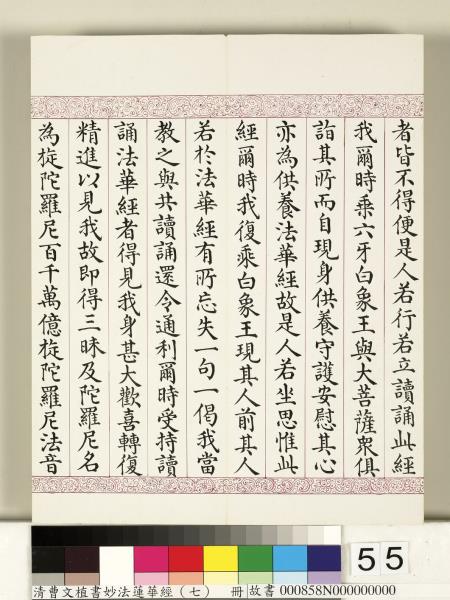 者皆不得便是人若行若立讀誦此經
我爾時乘六牙白象王與大菩薩衆俱
詣其所而自現身供養守護安慰其心
亦為供養法華經故是人若坐思惟此
經爾時我復乘白象王現其人前其人
若於法華經有所忘失一句一偈我當
教之與共讀誦還令通利爾時受持讀
誦法華經者得見我身甚大歡喜轉復
精進以見我故即得三昧及陀羅尼名
為旋陀羅尼百千萬億旋陀羅尼法音
55
清曹文植書妙法蓮華經（七） 冊 故書 000858N000000000